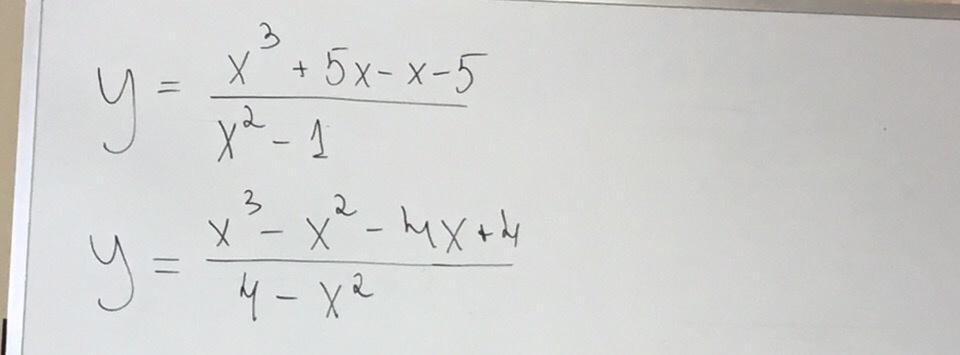 y = \frac{x^3 + 5x - x - 5}{x^2 - 1}
y = \frac{x^3 - x^2 - 4x + 4}{4 - x^2}